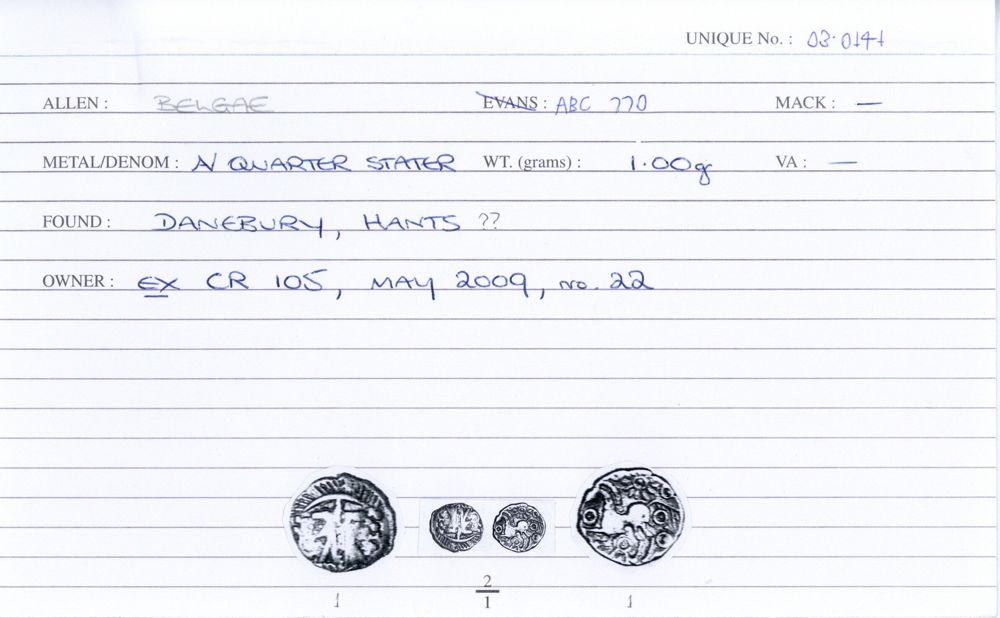 UNIQUE No. : 03·0141
ALLEN : BELGAE EVANS : ABC 770 MACK : —
METAL/DENOM : N QUARTER STATER WT. (grams) : 1.00g VA : —
FOUND : DANEBURY, HANTS ??
OWNER : EX CR 105, MAY 2009, no. 22
2
1 1 1